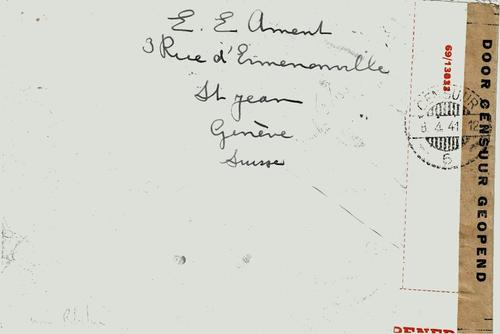 E. E Ament
3 Rue d'Ermenonville
St Jean
Genève
Suisse
69/13032
CENSUUR
8.4.41 12
5
DOOR CENSUUR GEOPEND